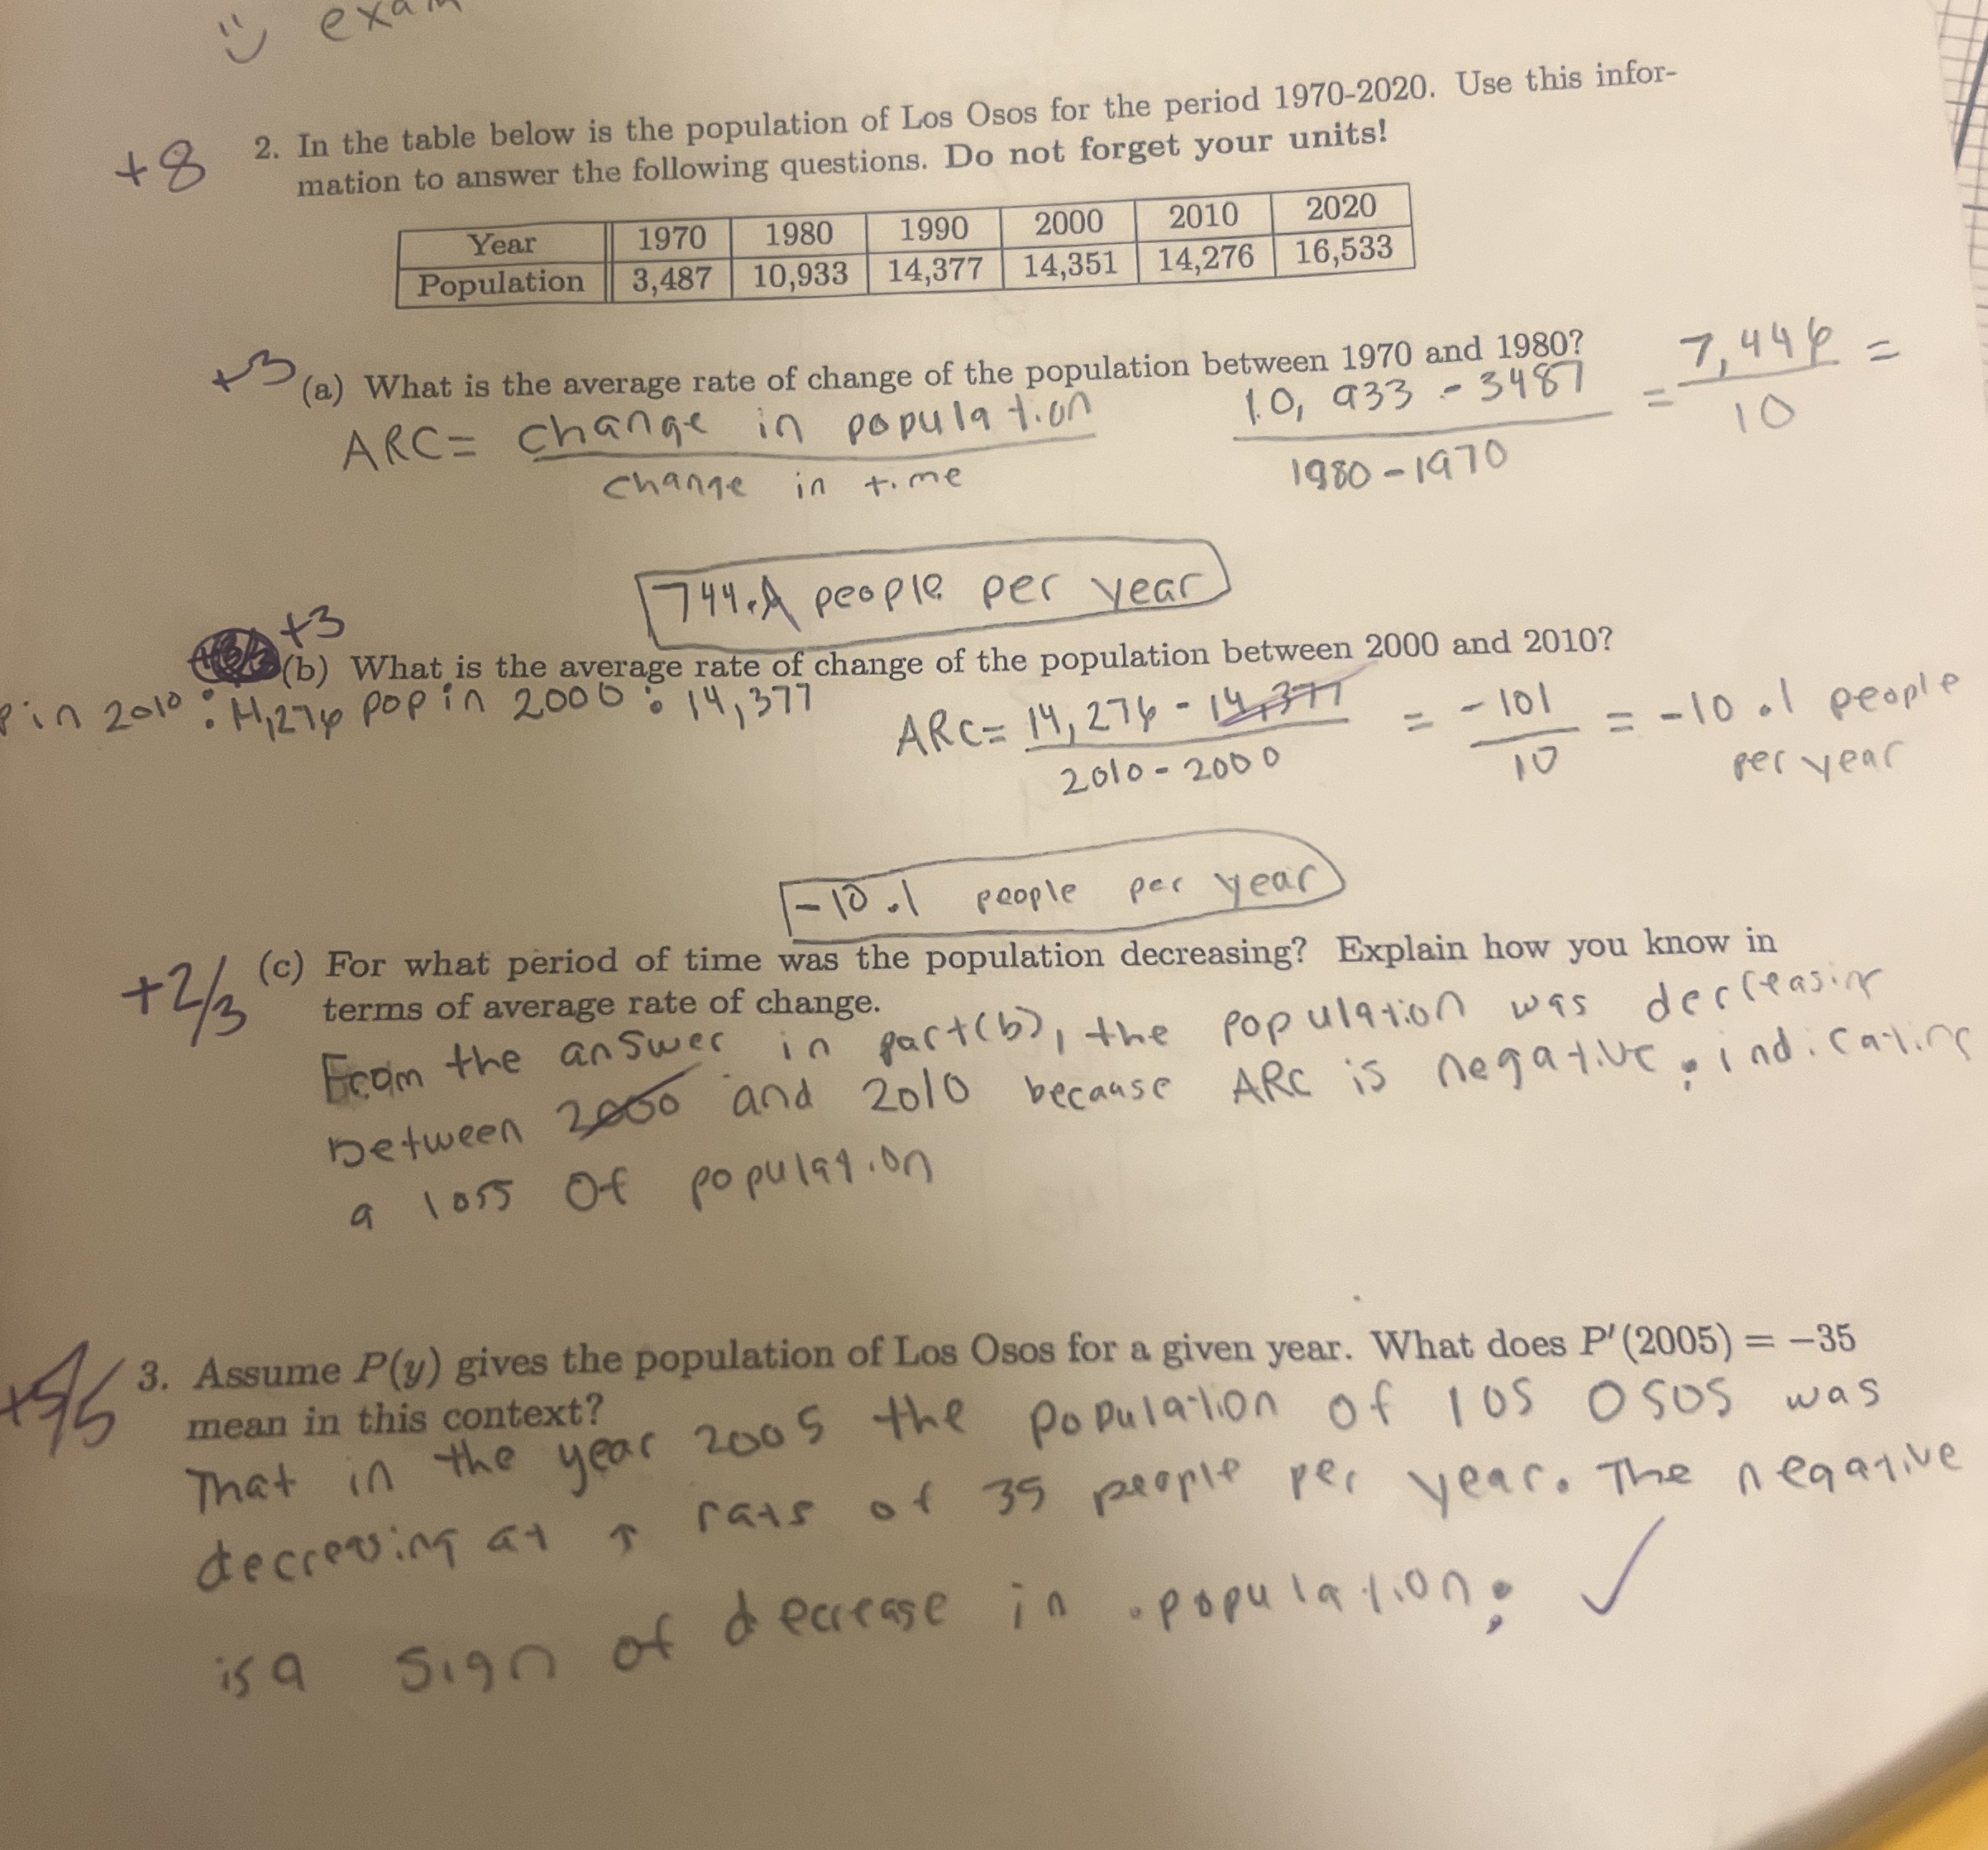 exam
+8
2. In the table below is the population of Los Osos for the period 1970-2020. Use this infor-
mation to answer the following questions. Do not forget your units!
Year 1970 1980 1990 2000 2010 2020
Population 3,487 10,933 14,377 14,351 14,276 16,533
+3 (a) What is the average rate of change of the population between 1970 and 1980?
ARC = change in population / change in time
10,933 - 3487 / 1980 - 1970 = 7,446 / 10 =
744.6 people per year
+3
(b) What is the average rate of change of the population between 2000 and 2010?
in 2010: 14,276 pop in 2000: 14,377
ARC = 14,276 - 14,377 / 2010 - 2000 = -101 / 10 = -10.1 people
per year
-10.1 people per year
+2/3 (c) For what period of time was the population decreasing? Explain how you know in
terms of average rate of change.
From the answer in part(b), the population was decreasing
between 2000 and 2010 because ARC is negative, indicating
a loss of population
+5/5 3. Assume P(y) gives the population of Los Osos for a given year. What does P'(2005) = −35
mean in this context?
That in the year 2005 the population of los osos was
decreasing at rats of 35 people per year. The negative
is a sign of decrease in population. ✓